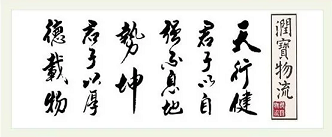 潤寶物流
天行健
君子以自
强不息地
勢坤
君子以厚
德載物